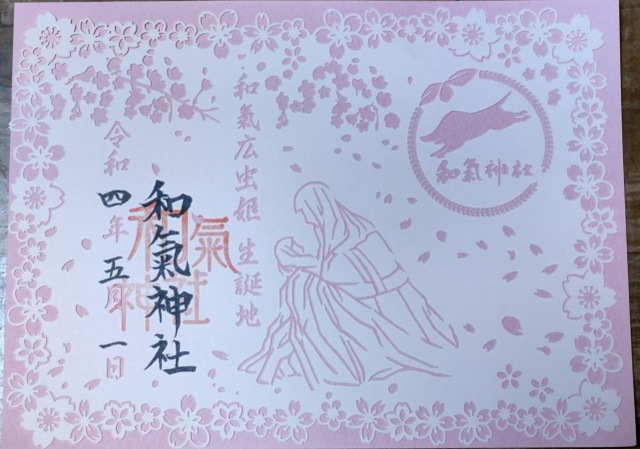 和氣神社
和氣広虫姫 生誕地
和氣神社
和氣神社
令和四年五月一日